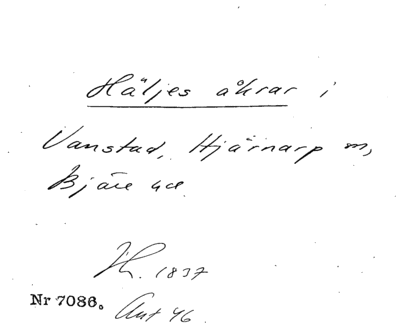 Häljes åkrar i
Vanstad, Hjärnarp m,
Bjäre hd
Jh. 1837
Nr 7086. Ant 46